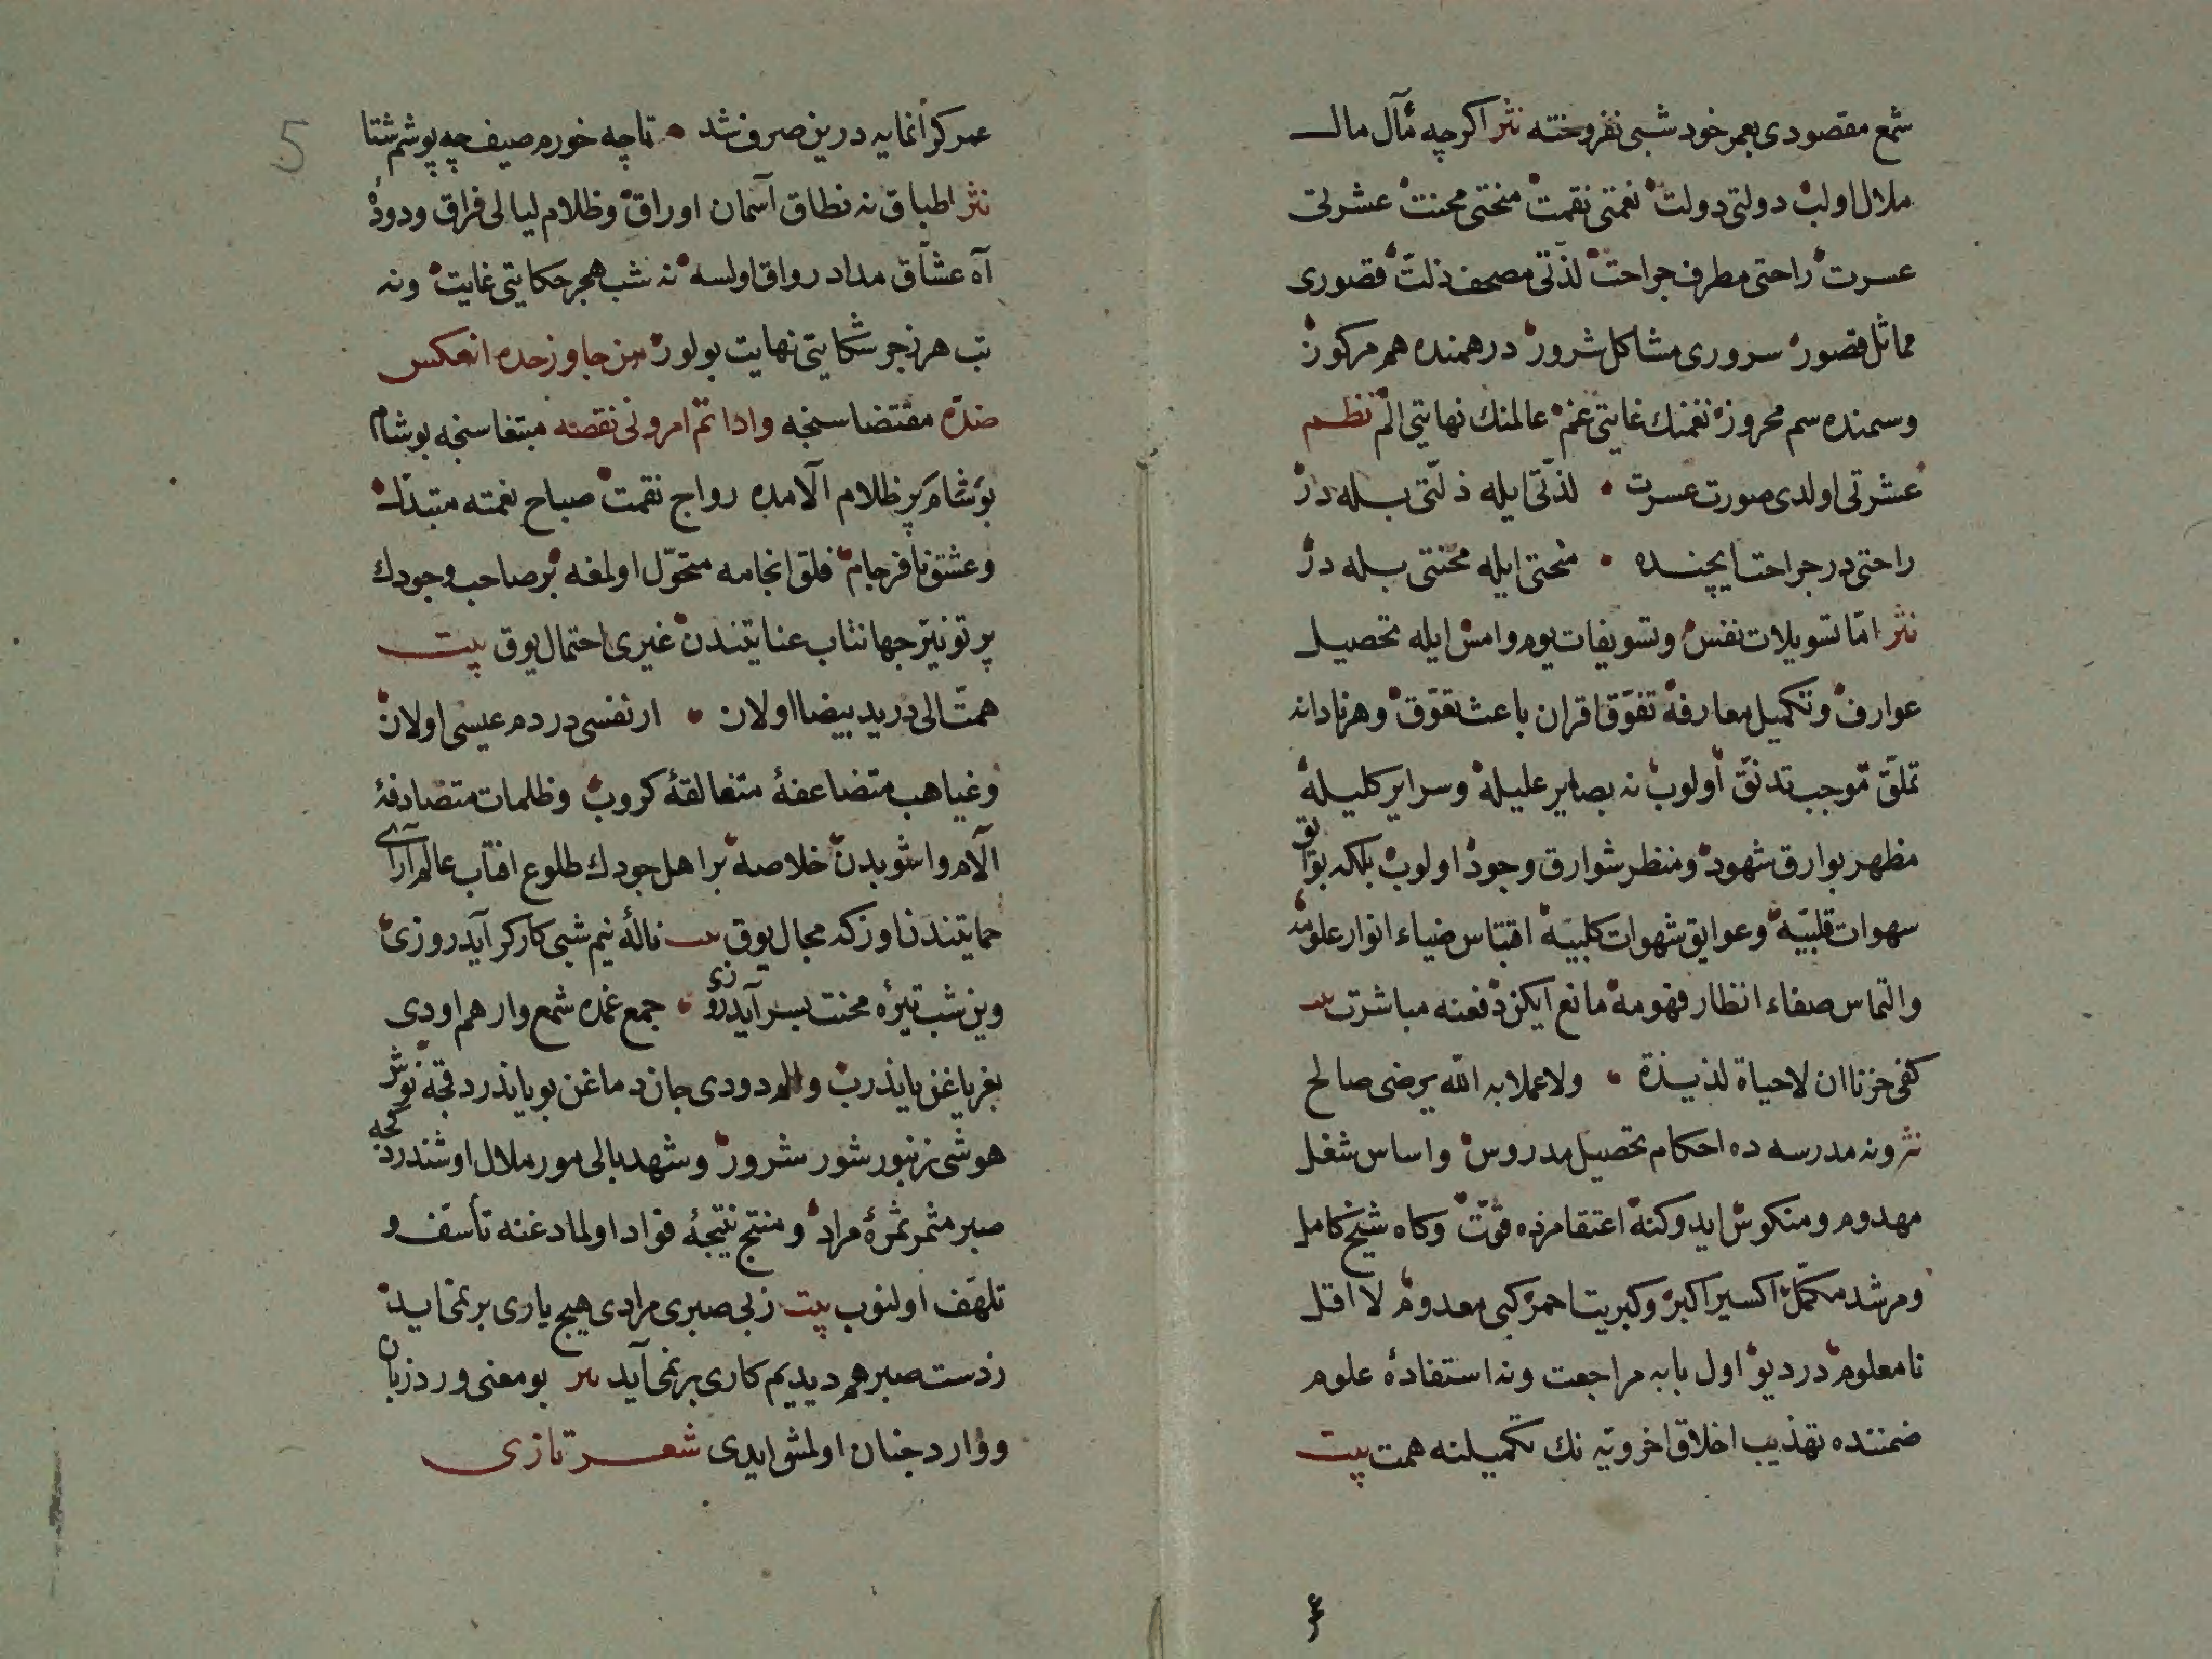 شمع مقصودی بعمر خود شبی نفروخته نثر اکرچه مآل مال
ملال اولب دولتی دولت نعمتی نقمت منحتی محنت عشرتی
عسرت راحتی مطرف جراحت لذّتی مصحف ذلّت قصوری
مماثل قصور سروری مشاکل شرور درهمنده هم مرکوز
وسمنده سم محروز نغمنك غایتی غم عالمنك نهایتی الم نظم
عشرتی اولدی صورت عسرت • لذّتی ایله ذلّتی بیله در
راحتی در جراحت ایچنده • منحتی ایله محنتی بیله در
نثر امّا تسویلات نفس وتسویفات یوم وامس ایله تحصیل
عوارف وتکمیل معارفه تفوّق اقران باعث تعوّق وهر نادانه
تملّق موجب تدنّق اولوب نه بصایر علیله وسرایر کلیله
مظهر بوارق شهود ومنظر شوارق وجود اولوب بلکه بوایق
سهوات قلبیّه وعوایق شهوات کلبیّه اقتباس ضیاء انوار علومه
والتماس صفاء انظار فهومه مانع ایکن دفعنه مباشرت بیت
کفی حزنا ان لا حیاة لذیذة • ولا عملا به الله یرضی صالح
نثر ونه مدرسه ده احکام تحصیل مدروس واساس شغل
مهدوم ومنکوس ایدوکنه اعتقامزه قوّت وکاه شیخ کامل
ومرشد مکمّل اکسیر اکبر وکبریت احمر کبی معدوم لا اقل
نامعلوم در دیو اول بابه مراجعت ونه استفادهٔ علوم
ضمننده تهذیب اخلاق اخرویّه نك تکمیلنه همت بیت
۴
5
عمر کرانمایه درین صرف شد • تا چه خورم صیف چه پوشم شتا
نثر اطباق نه نطاق آسمان اوراق وظلام لیالی فراق ودودهٔ
آه عشّاق مداد رواق اولسه نه شب هجر حکایتی غایت ونه
تب هر زجر شکایتی نهایت بولور من جاوز حده انعکس
ضدّه مقتضاسنجه واذا تمّ امر دنی نقصه مبتغاسنجه بو شام
بو شام پر ظلام آلامده رواج نقمت صباح نعمته متبدّل
وعشق نافرجام فلق انجامه متحوّل اولمغه بر صاحب وجودك
پرتو نیّر جهانتاب عنایتندن غیری احتمال یوق بیت
همّت الی در ید بیضا اولان • ار نفسی در دم عیسی اولان
وغیاهب متضاعفهٔ متغالقهٔ کروب وظلمات متصادفهٔ
آلام واشوبدن خلاصه بر اهل جودك طلوع افتاب عالم آرای
حمایتندن اوزکه مجال یوق بیت نالهٔ نیم شبی کارکر آید روزی
وین شب تیرهٔ محنت بسر آید روزی • جمع غمده شمع وار هم اودی
بغر یاغن یاندرب والم دودی جان دماغن بویاندردقجه نوش
هوشی زنبور شور شرور وشهد بالی مور ملال اوشندردکجه
صبر مثمر ثمرهٔ مراد ومنتج نتیجهٔ فواد اولمادغنه تأسّف و
تلهّف اولنوب بیت ز بی صبری مرادی هیچ یاری بر نمی اید
ز دست صبر هم دیدیم کاری بر نمی آید نثر بو معنی ورد زبان
ووارد جنان اولمش ایدی شعر تازی